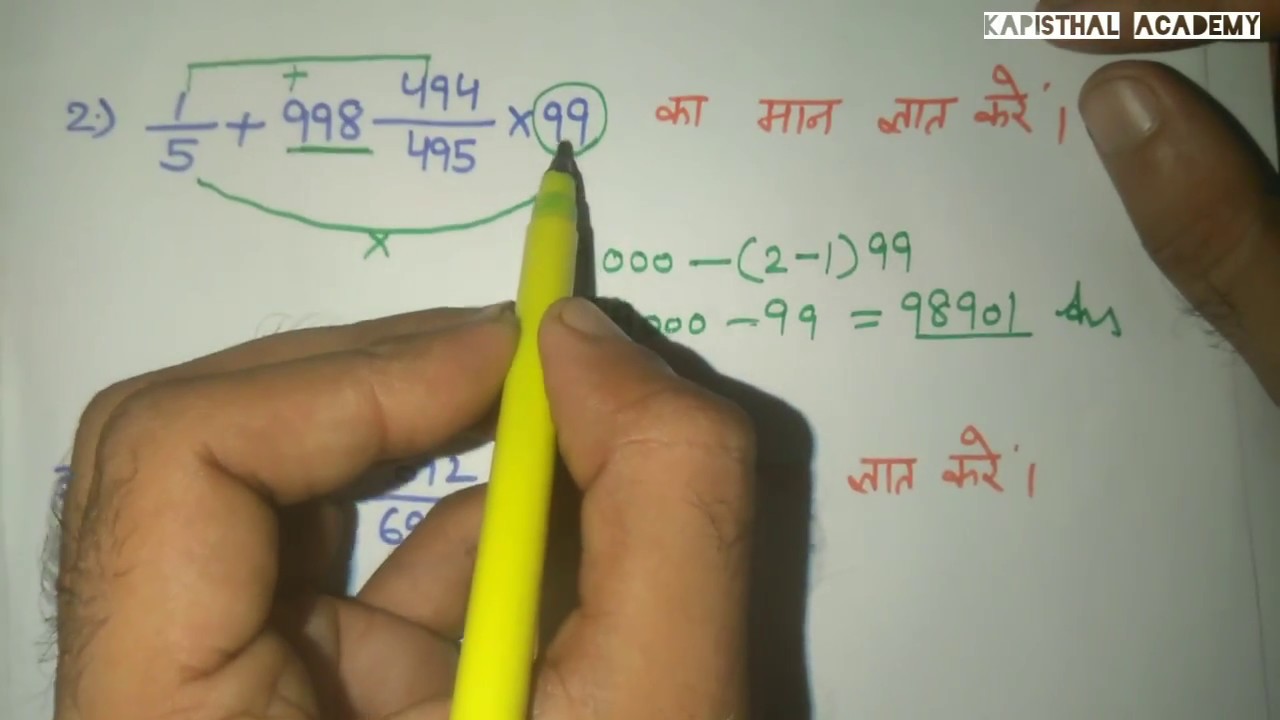 KAPISTHAL ACADEMY
2.) 1/5 + 998 494/495 × 99 का मान ज्ञात करें।
+
×
000 — (2-1) 99
000 - 99 = 98901 Ans
ज्ञात करें।